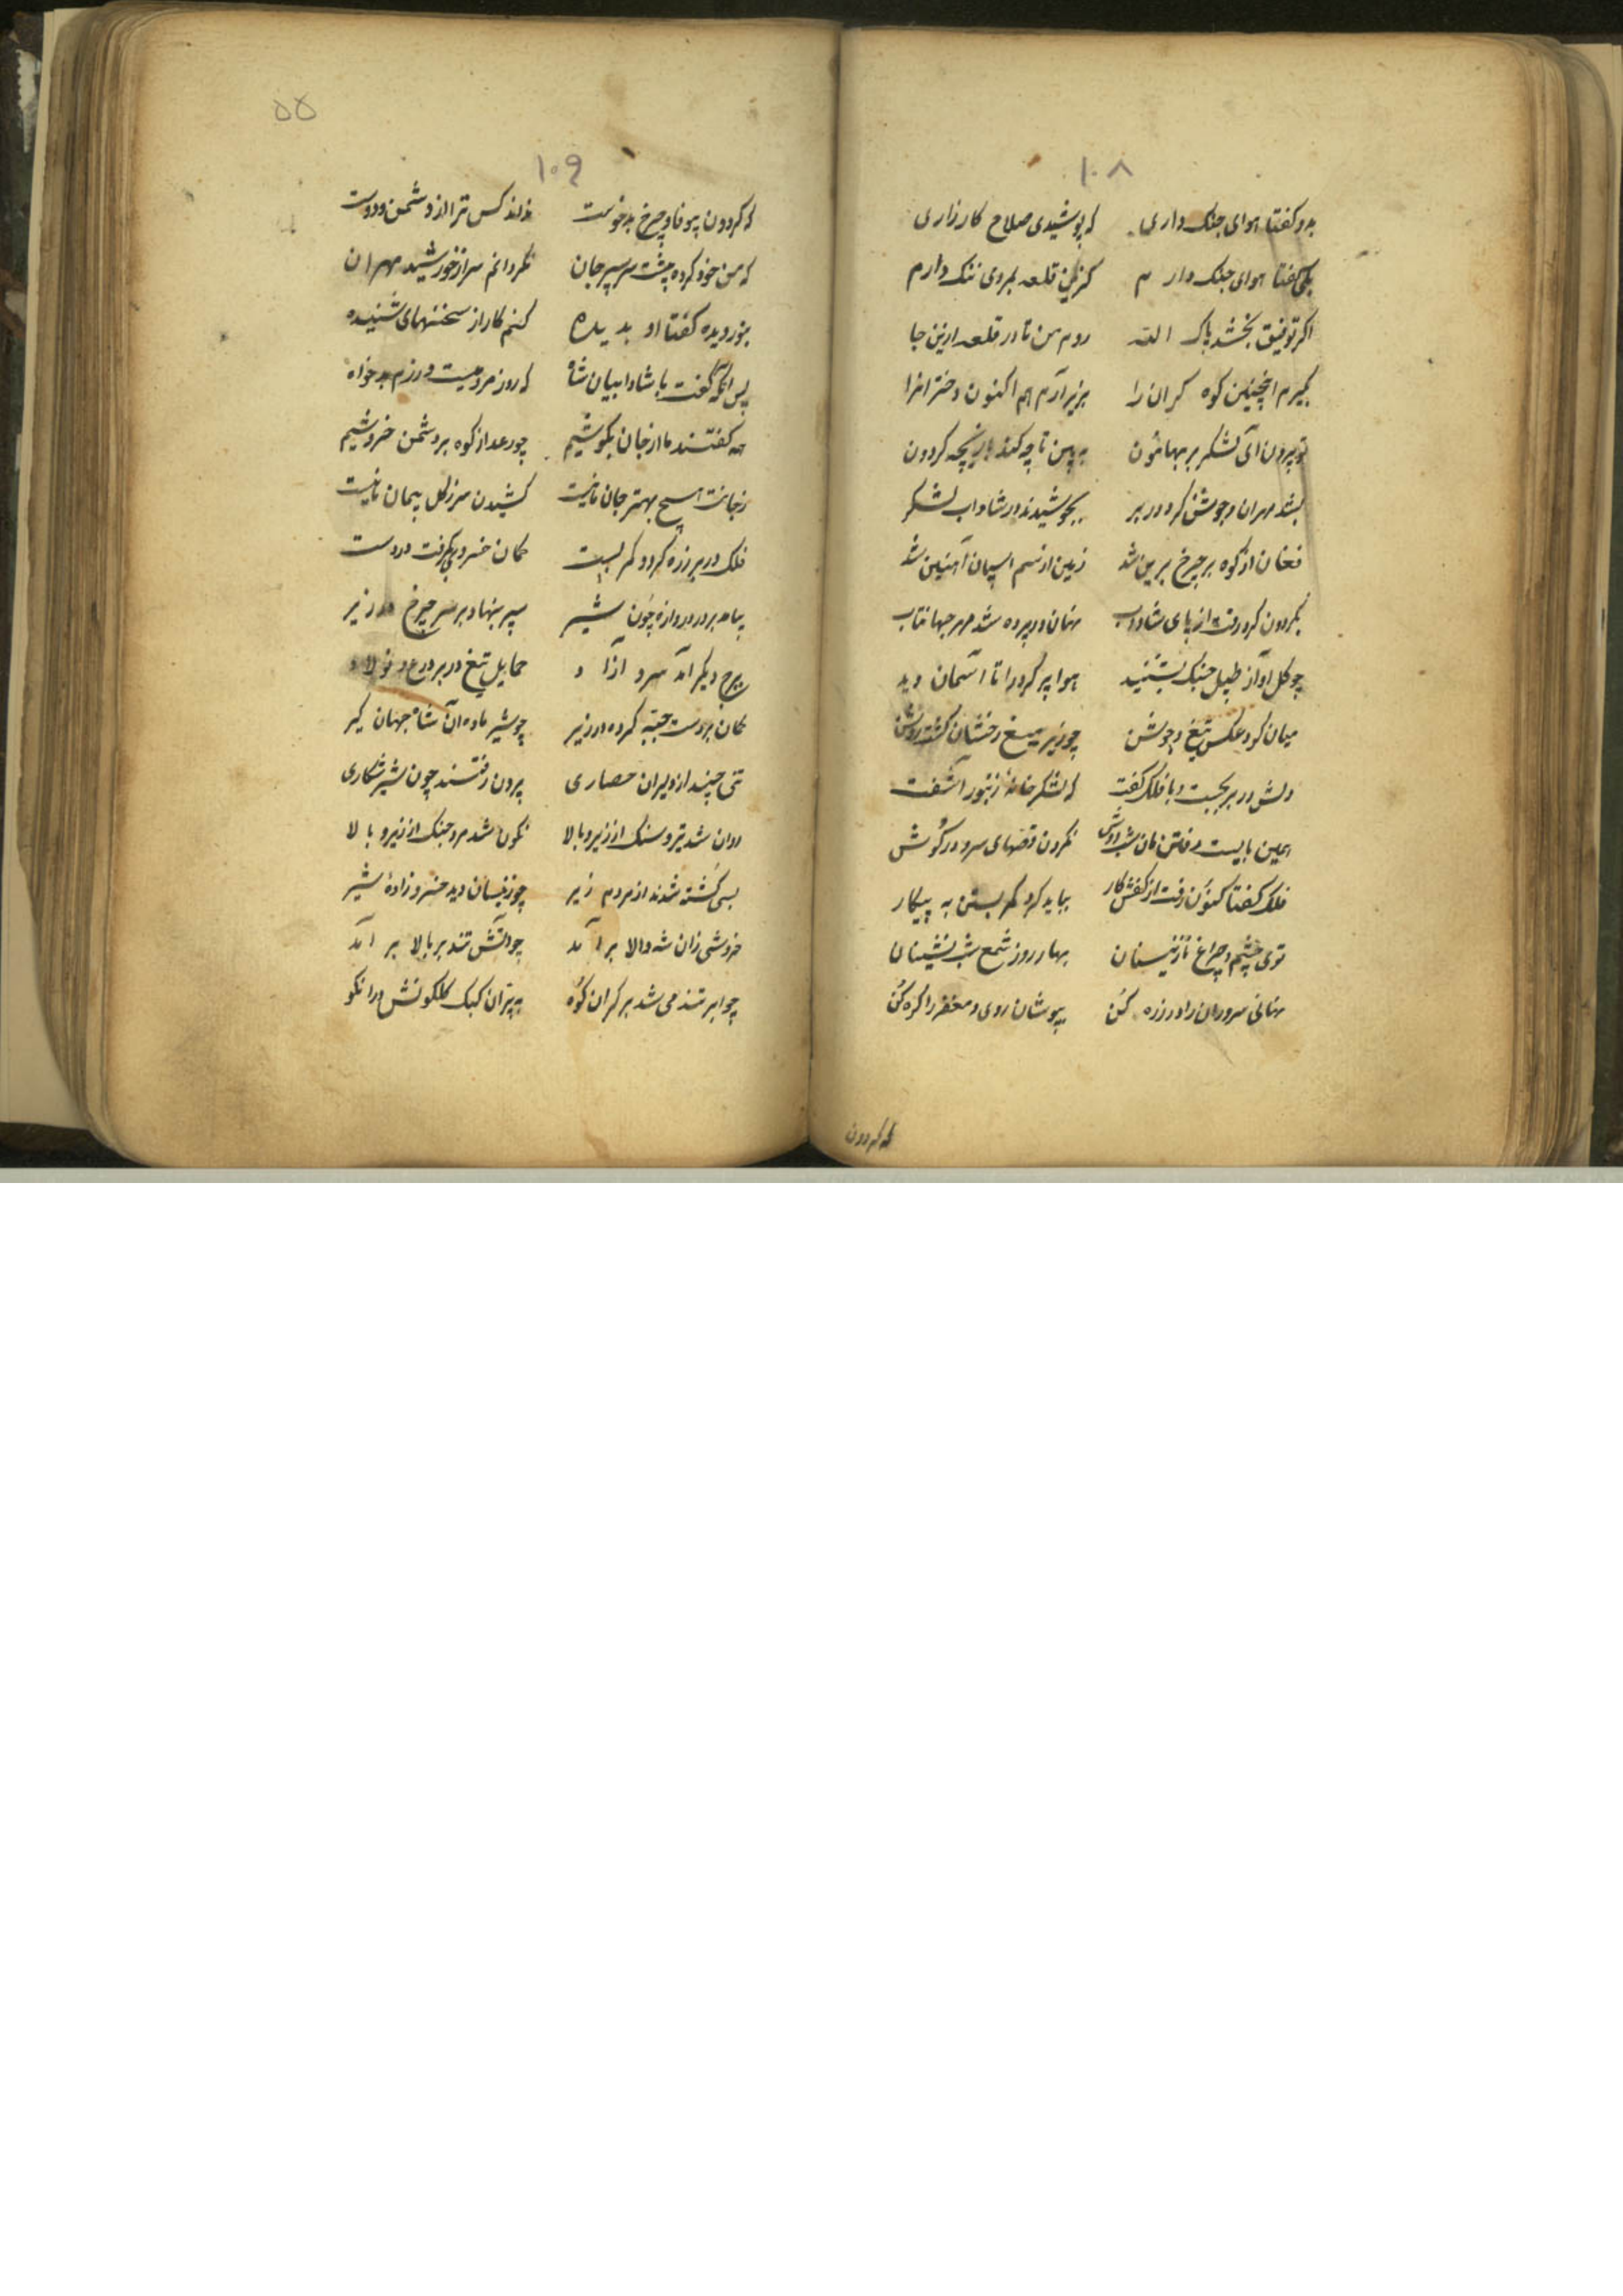 ۱۰۸
بدو گفتا هوای جنک داری که پوشیدی صلاح کارزاری
بکی گفتا هوای جنک دارم کزین قلعه بمردی ننک دارم
اکر توفیق بخشد پاک الله روم من تا در قلعه ازین جا
بکیرم اینچنین کوه کران را بزیر آرم هم اکنون دخترانرا
تو بیرون آی لشکر بر بهامون به بین تا چه کند بازیچه کردون
بشد مهران و جوشن کرد در بر بجوشیدند در شاداب لشکر
فغان از کوه بر چرخ برین شد زمین از سم اسپان آهنین شد
بکردون کرد رفت از پای شاداب نهان در پرده شد مهر جهانتاب
چو کل آواز طبل جنک بشنید هوا پر کرد را تا آسمان دید
میان کرد عکس تیغ و جوشن چو زیر میغ رخشان کشته روشن
دلش در بر بجست و با فلک گفت که لشکر خانهٔ زنبور آشفت
همین بایست رفتن مان شب دوش نکردن قصهای سرو در کوش
فلک گفتا کنون رفت از کفش کار بباید کرد کمر بستن به پیکار
توی چشم و چراغ نازنینان بهار روز شمع شب نشینان
نهانی سروران را در زره کن بپوشان روی و مغفر را کره کن
که کردون
۵۵
۱۰۹
که کردون بیوفا و چرخ بدخوست نداند کس ترا از دشمن و دوست
که من خود کرده پشت سر سپر جان نکردانم سر از خورشید مهران
بنوردیده گفتا او بدیده کنم کار از سخنهای شنیده
پس آنکه گفت با شادابیان شاه که روز مردمیست و رزم بدخواه
همه گفتند ما از جان بکوشیم چو رعد از کوه بر دشمن خروشیم
ز جانت هیچ بهتر جان ما نیست کشیدن سر ز کل پیمان ما نیست
فلک در بر زره کرد و کمر بست کمان خسروی بکرفت در دست
بیامد بر در دروازه چون شیر سپر بنهاد بر سر چرخ در زیر
ببرج دیکر آمد سرو آزاد حمایل تیغ در بر درع فولاد
کمان بر دست جعبه کرده در زیر چو شیر ماده آن شاه جهان کیر
تنی چند از دلیران حصاری برون رفتند چون شیر شکاری
روان شد تیر و سنک از زیر و بالا نکون شد مرد جنک از زیر و بالا
بسی کشته شدند از مردم زیر چو زینسان دید خسرو زادهٔ شیر
خروشی زان شه والا بر آمد چو آتش تند بر بالا بر آمد
چو ابر تند می شد بر کران کوه به پران کبک کلکونش در انکو